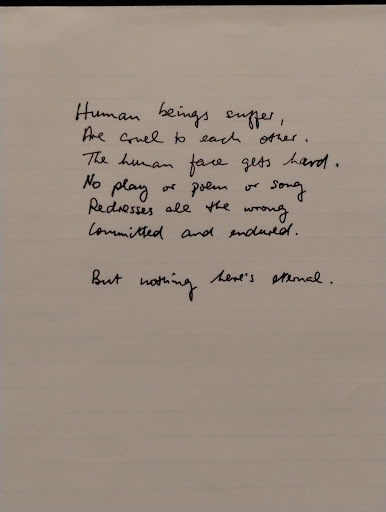 Human beings suffer,
Are cruel to each other.
The human face gets hard.
No play or poem or song
Redresses all the wrong
Committed and endured.
But nothing here's eternal.